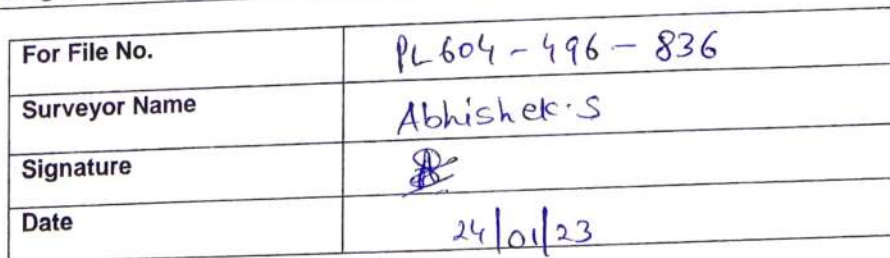 For File No. PL604-496-836
Surveyor Name Abhishek.S
Signature
Date 24/01/23